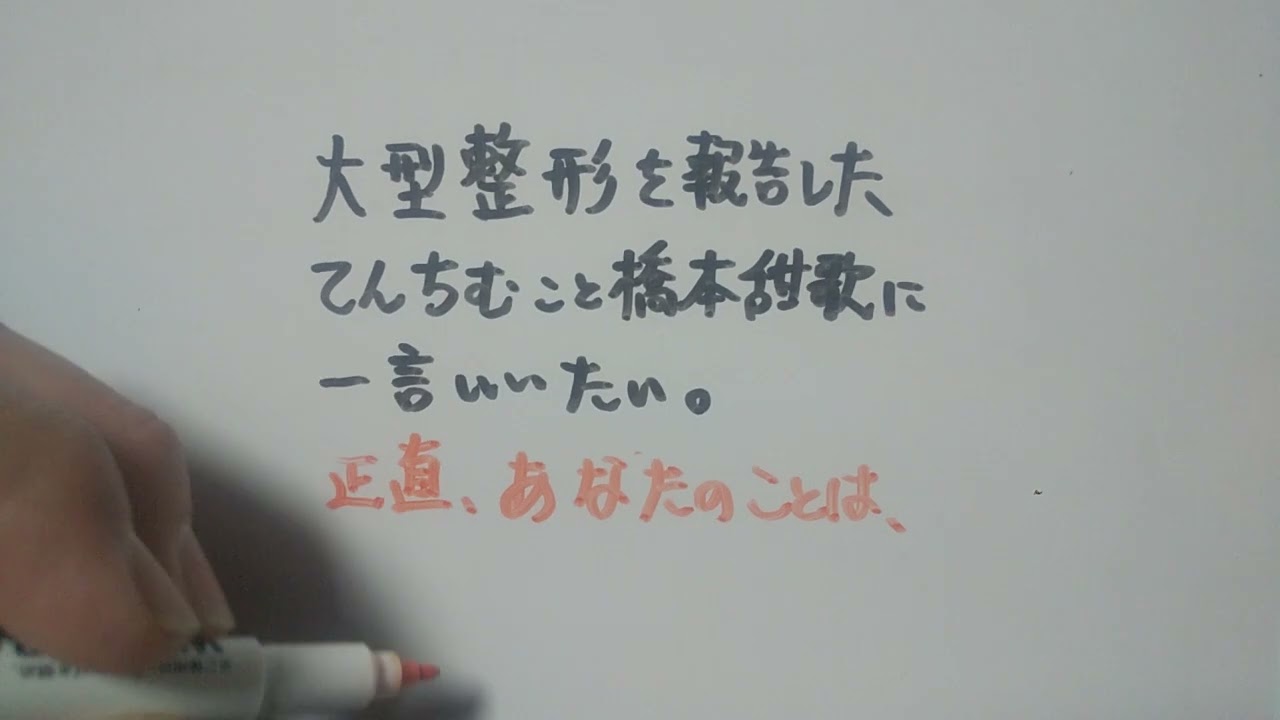 大型整形を報告した
てんちむこと橋本甜歌に
一言いいたい。
正直、あなたのことは、